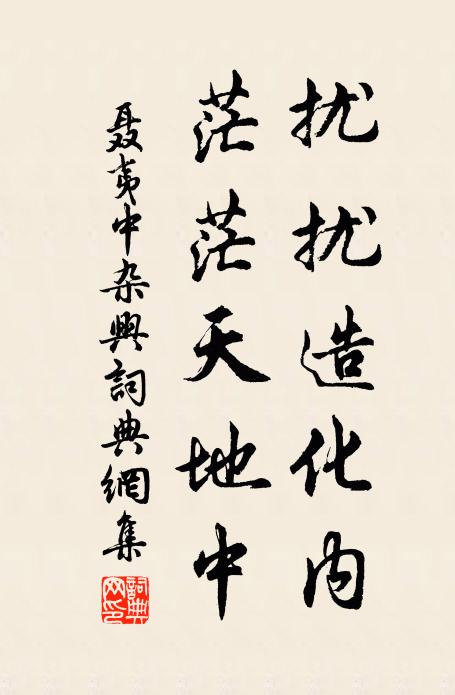 扰扰造化内
茫茫天地中
聂夷中杂興詞典網集
詞典网印